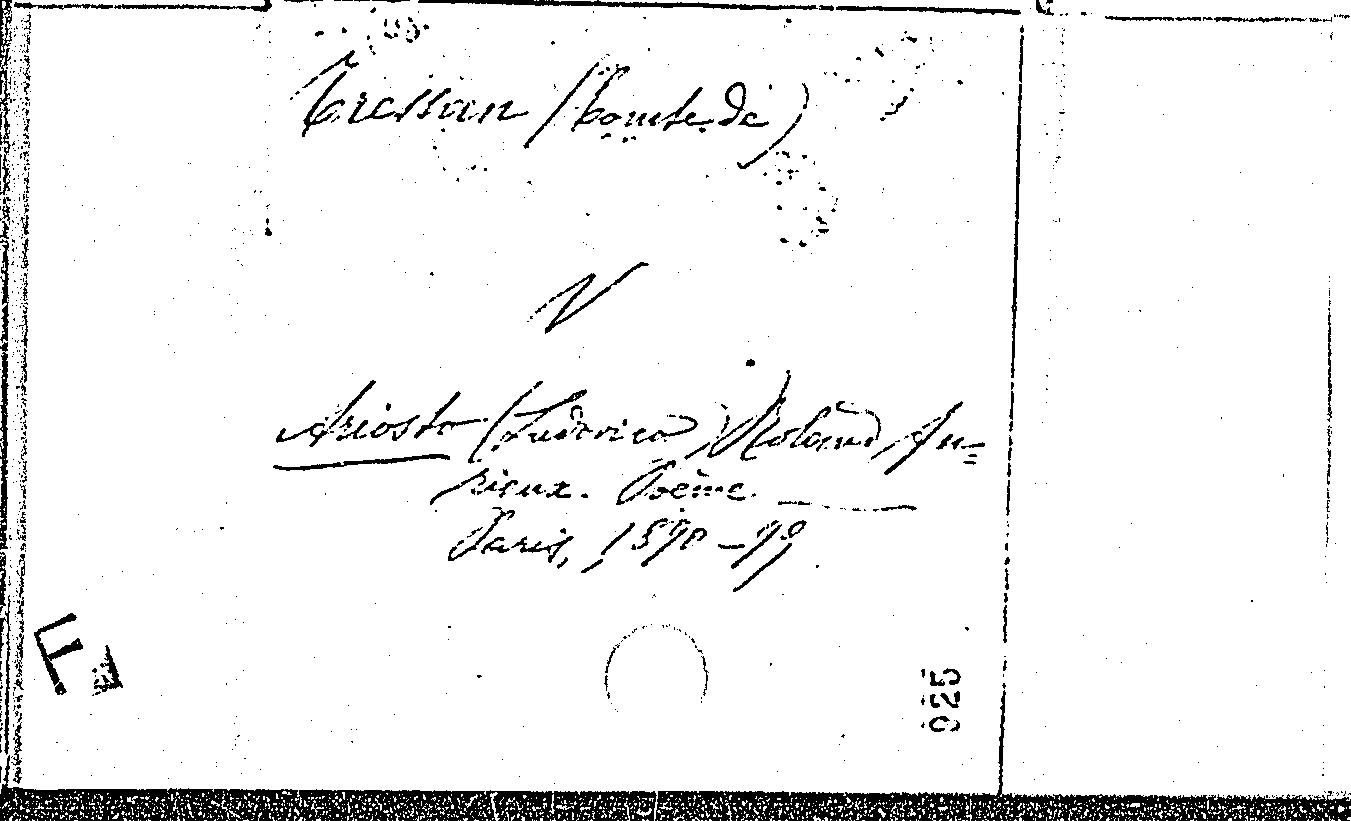 Tressan (Comte de)
V
Ariosto (Ludovico) Roland fu=
rieux. Poème.
Paris, 1890-99
925